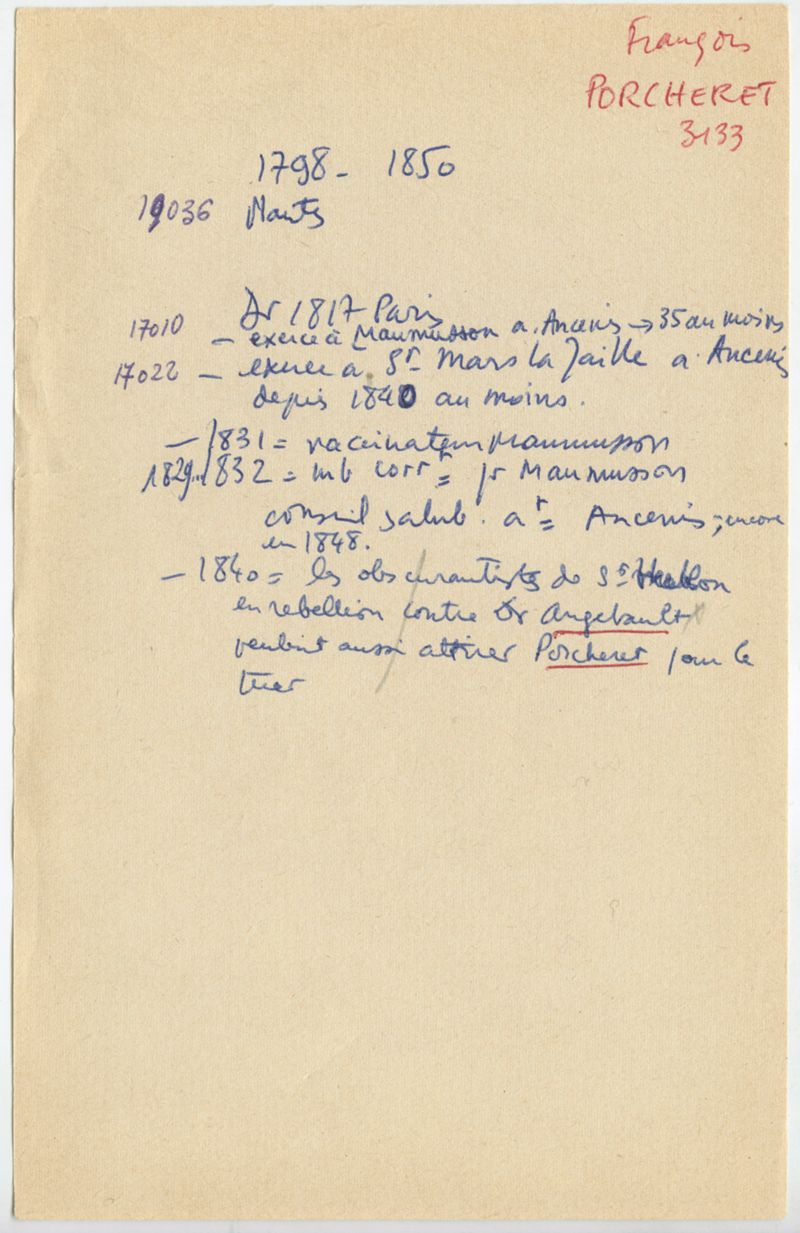 François
PORCHERET
3133
1798 - 1850
19036 Nantes
Dr 1817 Paris
17010 - exerce à Maumusson a. Ancenis → 35 au moins
17022 - exerce à St Mars la Jaille a. Ancenis
depuis 1840 au moins.
- 1831 = vaccinateur Maumusson
1829.. 1832 = mb corrt = pr Maumusson
conseil salub. art = Ancenis ; encore
en 1848.
- 1840 = les obscurantistes de St
en rebellion contre Dr Angebault
veulent aussi attirer Porcheret pour le
tuer